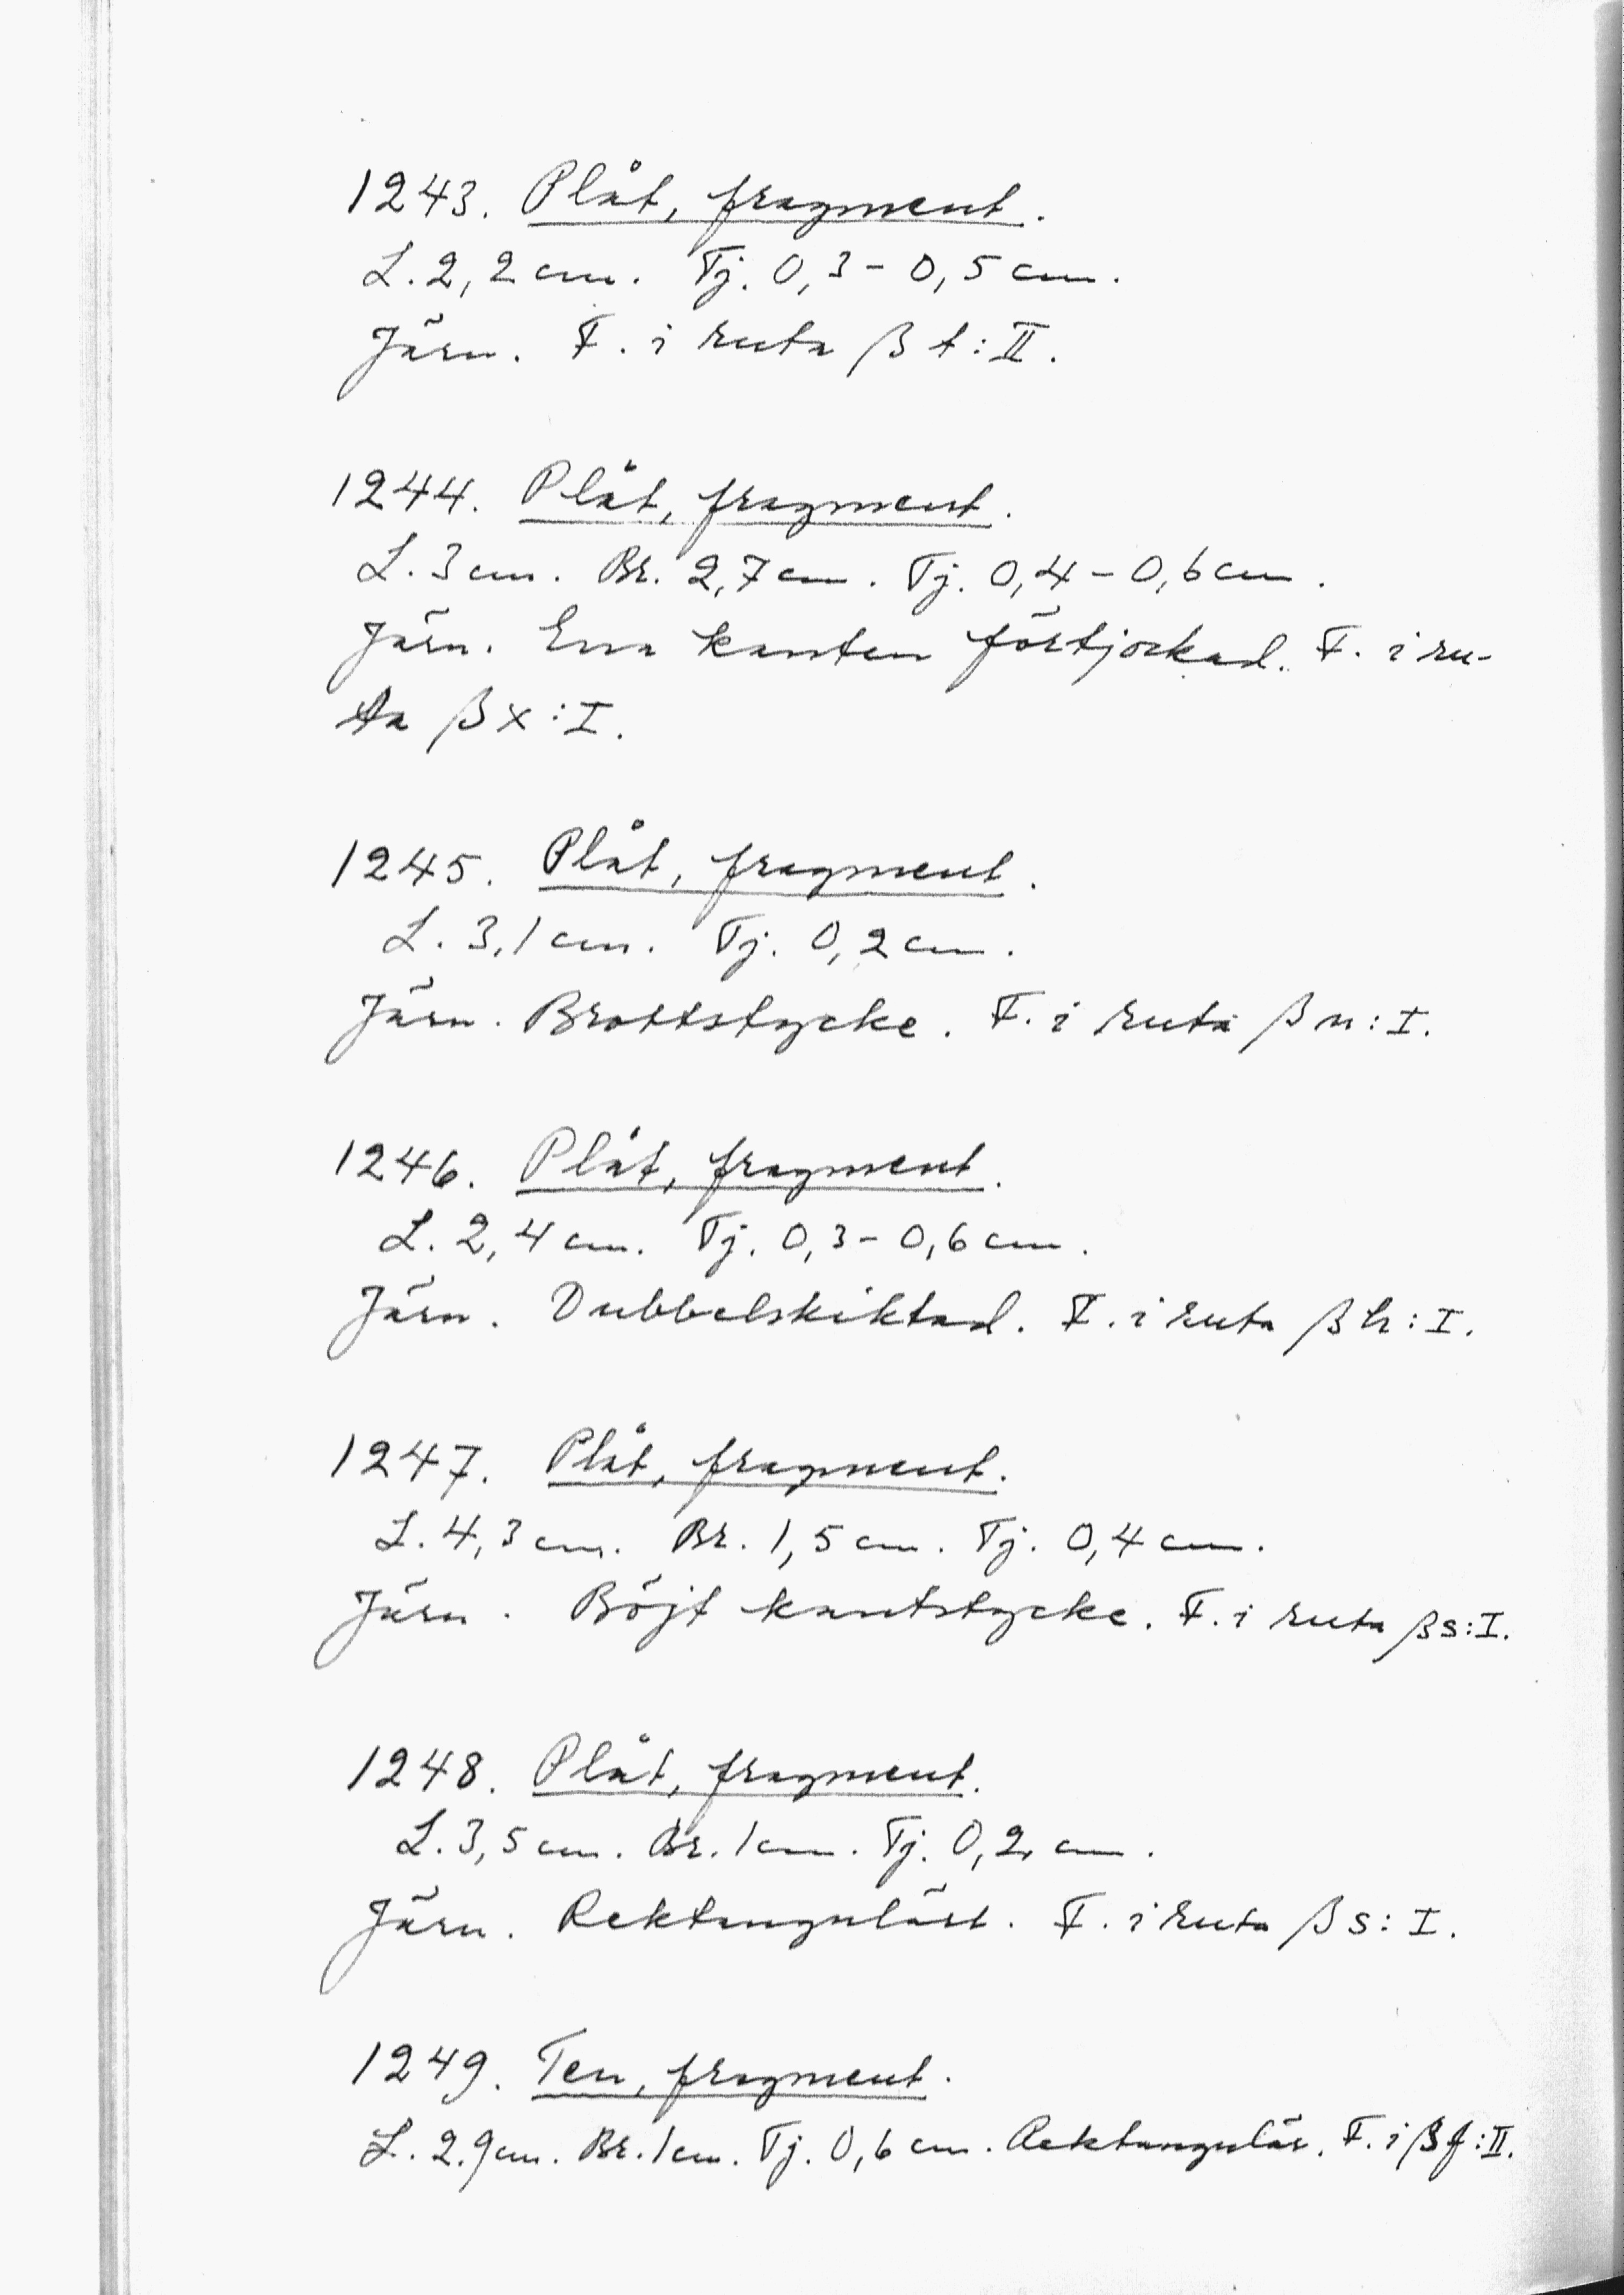 1243. Plåt, fragment.
L. 2,2 cm. Tj. 0,3-0,5 cm.
Järn. F. i ruta β t:II.
1244. Plåt, fragment.
L. 3 cm. Br. 2,7 cm. Tj. 0,4-0,6 cm.
Järn. Ena kanten förtjockad. F. i ru-
ta β x:I.
1245. Plåt, fragment.
L. 3,1 cm. Tj. 0,2 cm.
Järn. Brottstycke. F. i ruta β n:I.
1246. Plåt, fragment.
L. 2,4 cm. Tj. 0,3-0,6 cm.
Järn. Dubbelskiktad. F. i ruta β h:I.
1247. Plåt, fragment.
L. 4,3 cm. Br. 1,5 cm. Tj. 0,4 cm.
Järn. Böjt kantstycke. F. i ruta β s:I.
1248. Plåt, fragment.
L. 3,5 cm. Br. 1 cm. Tj. 0,2 cm.
Järn. Rektangulärt. F. i ruta β s:I.
1249. Ten, fragment.
L. 2.9 cm. Br. 1 cm. Tj. 0,6 cm. Rektangulär. F. i β f:II.